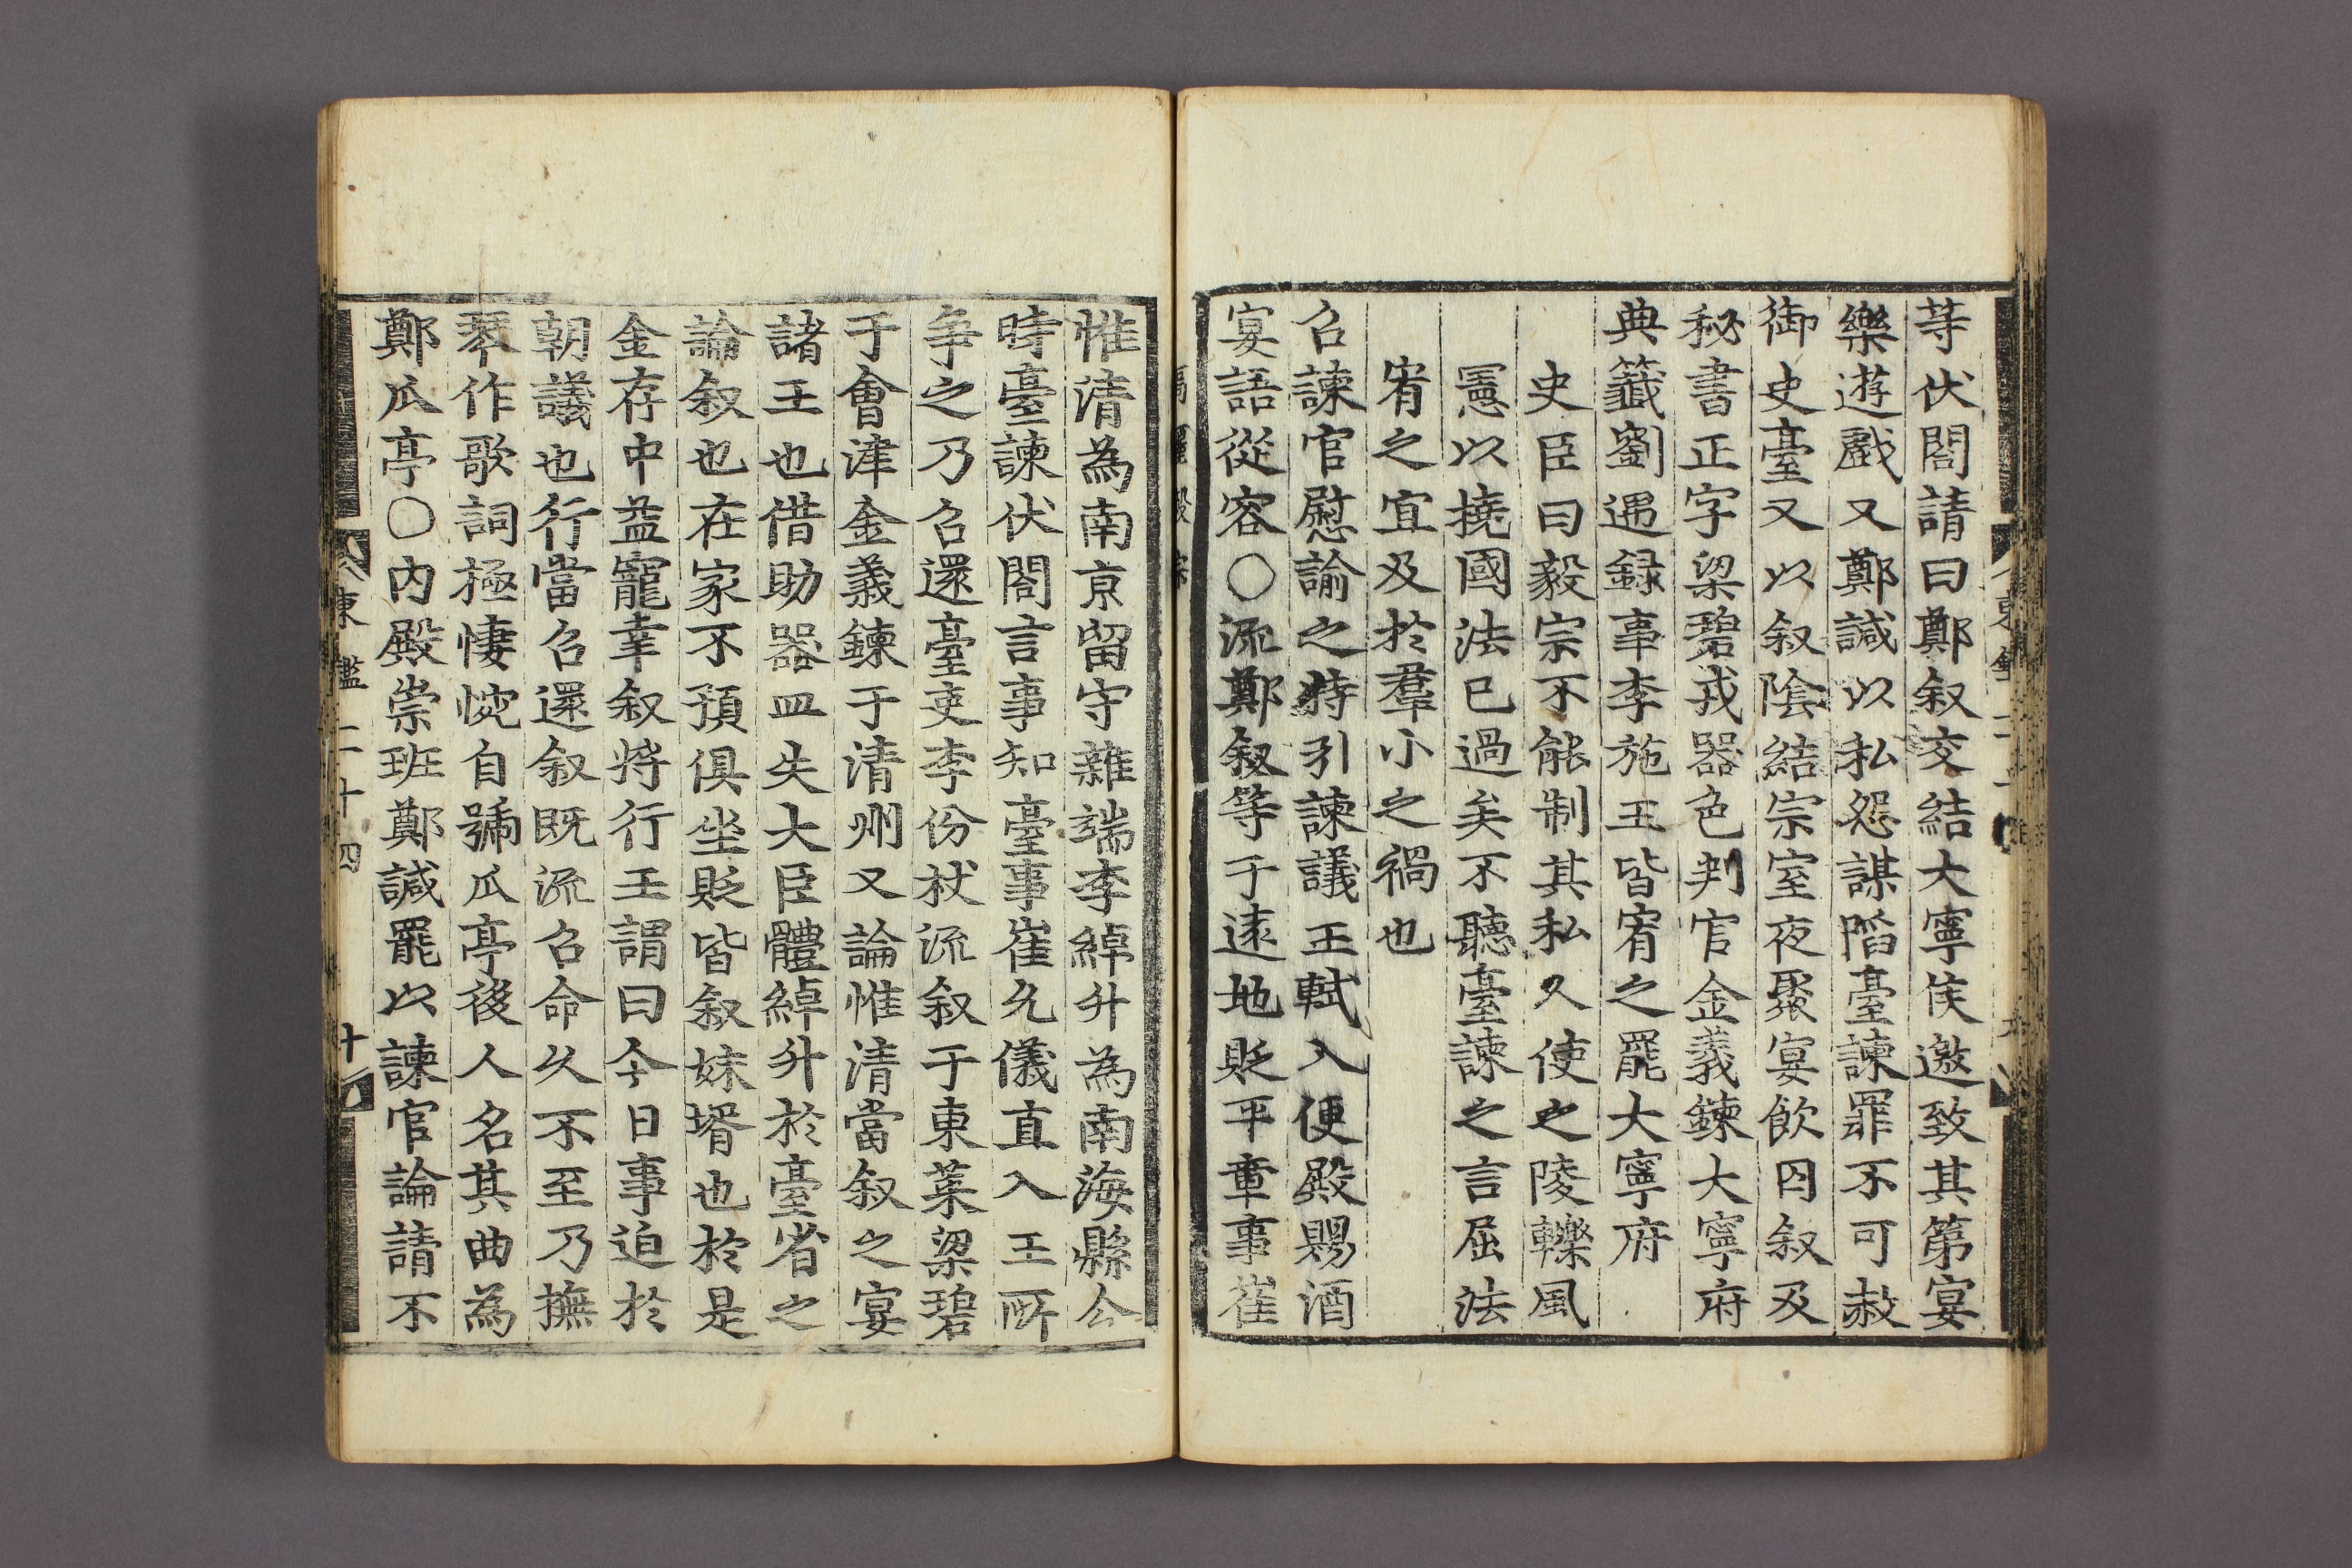 等伏閤請曰鄭叙交結大寧侯邀致其第宴
樂遊戱又鄭諴以私怨謀陷臺諫罪不可赦
御史臺又以叙陰結宗室夜聚宴飮囚叙及
秘書正字梁碧戎器色判官金義鍊大寧府
典籤劉遇録事李施王皆宥之罷大寧府
史臣曰毅宗不能制其私久使之陵轢風
憲以撓國法已過矣不聽臺諫之言屈法
宥之宜及於羣小之禍也
召諫官慰諭之特引諫議王軾入便殿賜酒
宴語從容〇流鄭叙等于遠地貶平章事崔
高麗毅宗
惟清為南京留守雜端李綽升為南海縣令
時臺諫伏閤言事知臺事崔允儀直入王所
争之乃召還臺吏李份杖流叙于東萊梁碧
于會津金義鍊于清州又論惟清當叙之宴
諸王也借助器皿失大臣體綽升於臺省之
論叙也在家不預俱坐貶皆叙妹壻也於是
金存中益寵幸叙将行王謂曰今日事迫於
朝議也行當召還叙既流召命久不至乃撫
琴作歌詞極悽惋自號瓜亭後人名其曲為
鄭瓜亭〇內殿崇班鄭諴罷以諫官論請不
東鑑二十四 十